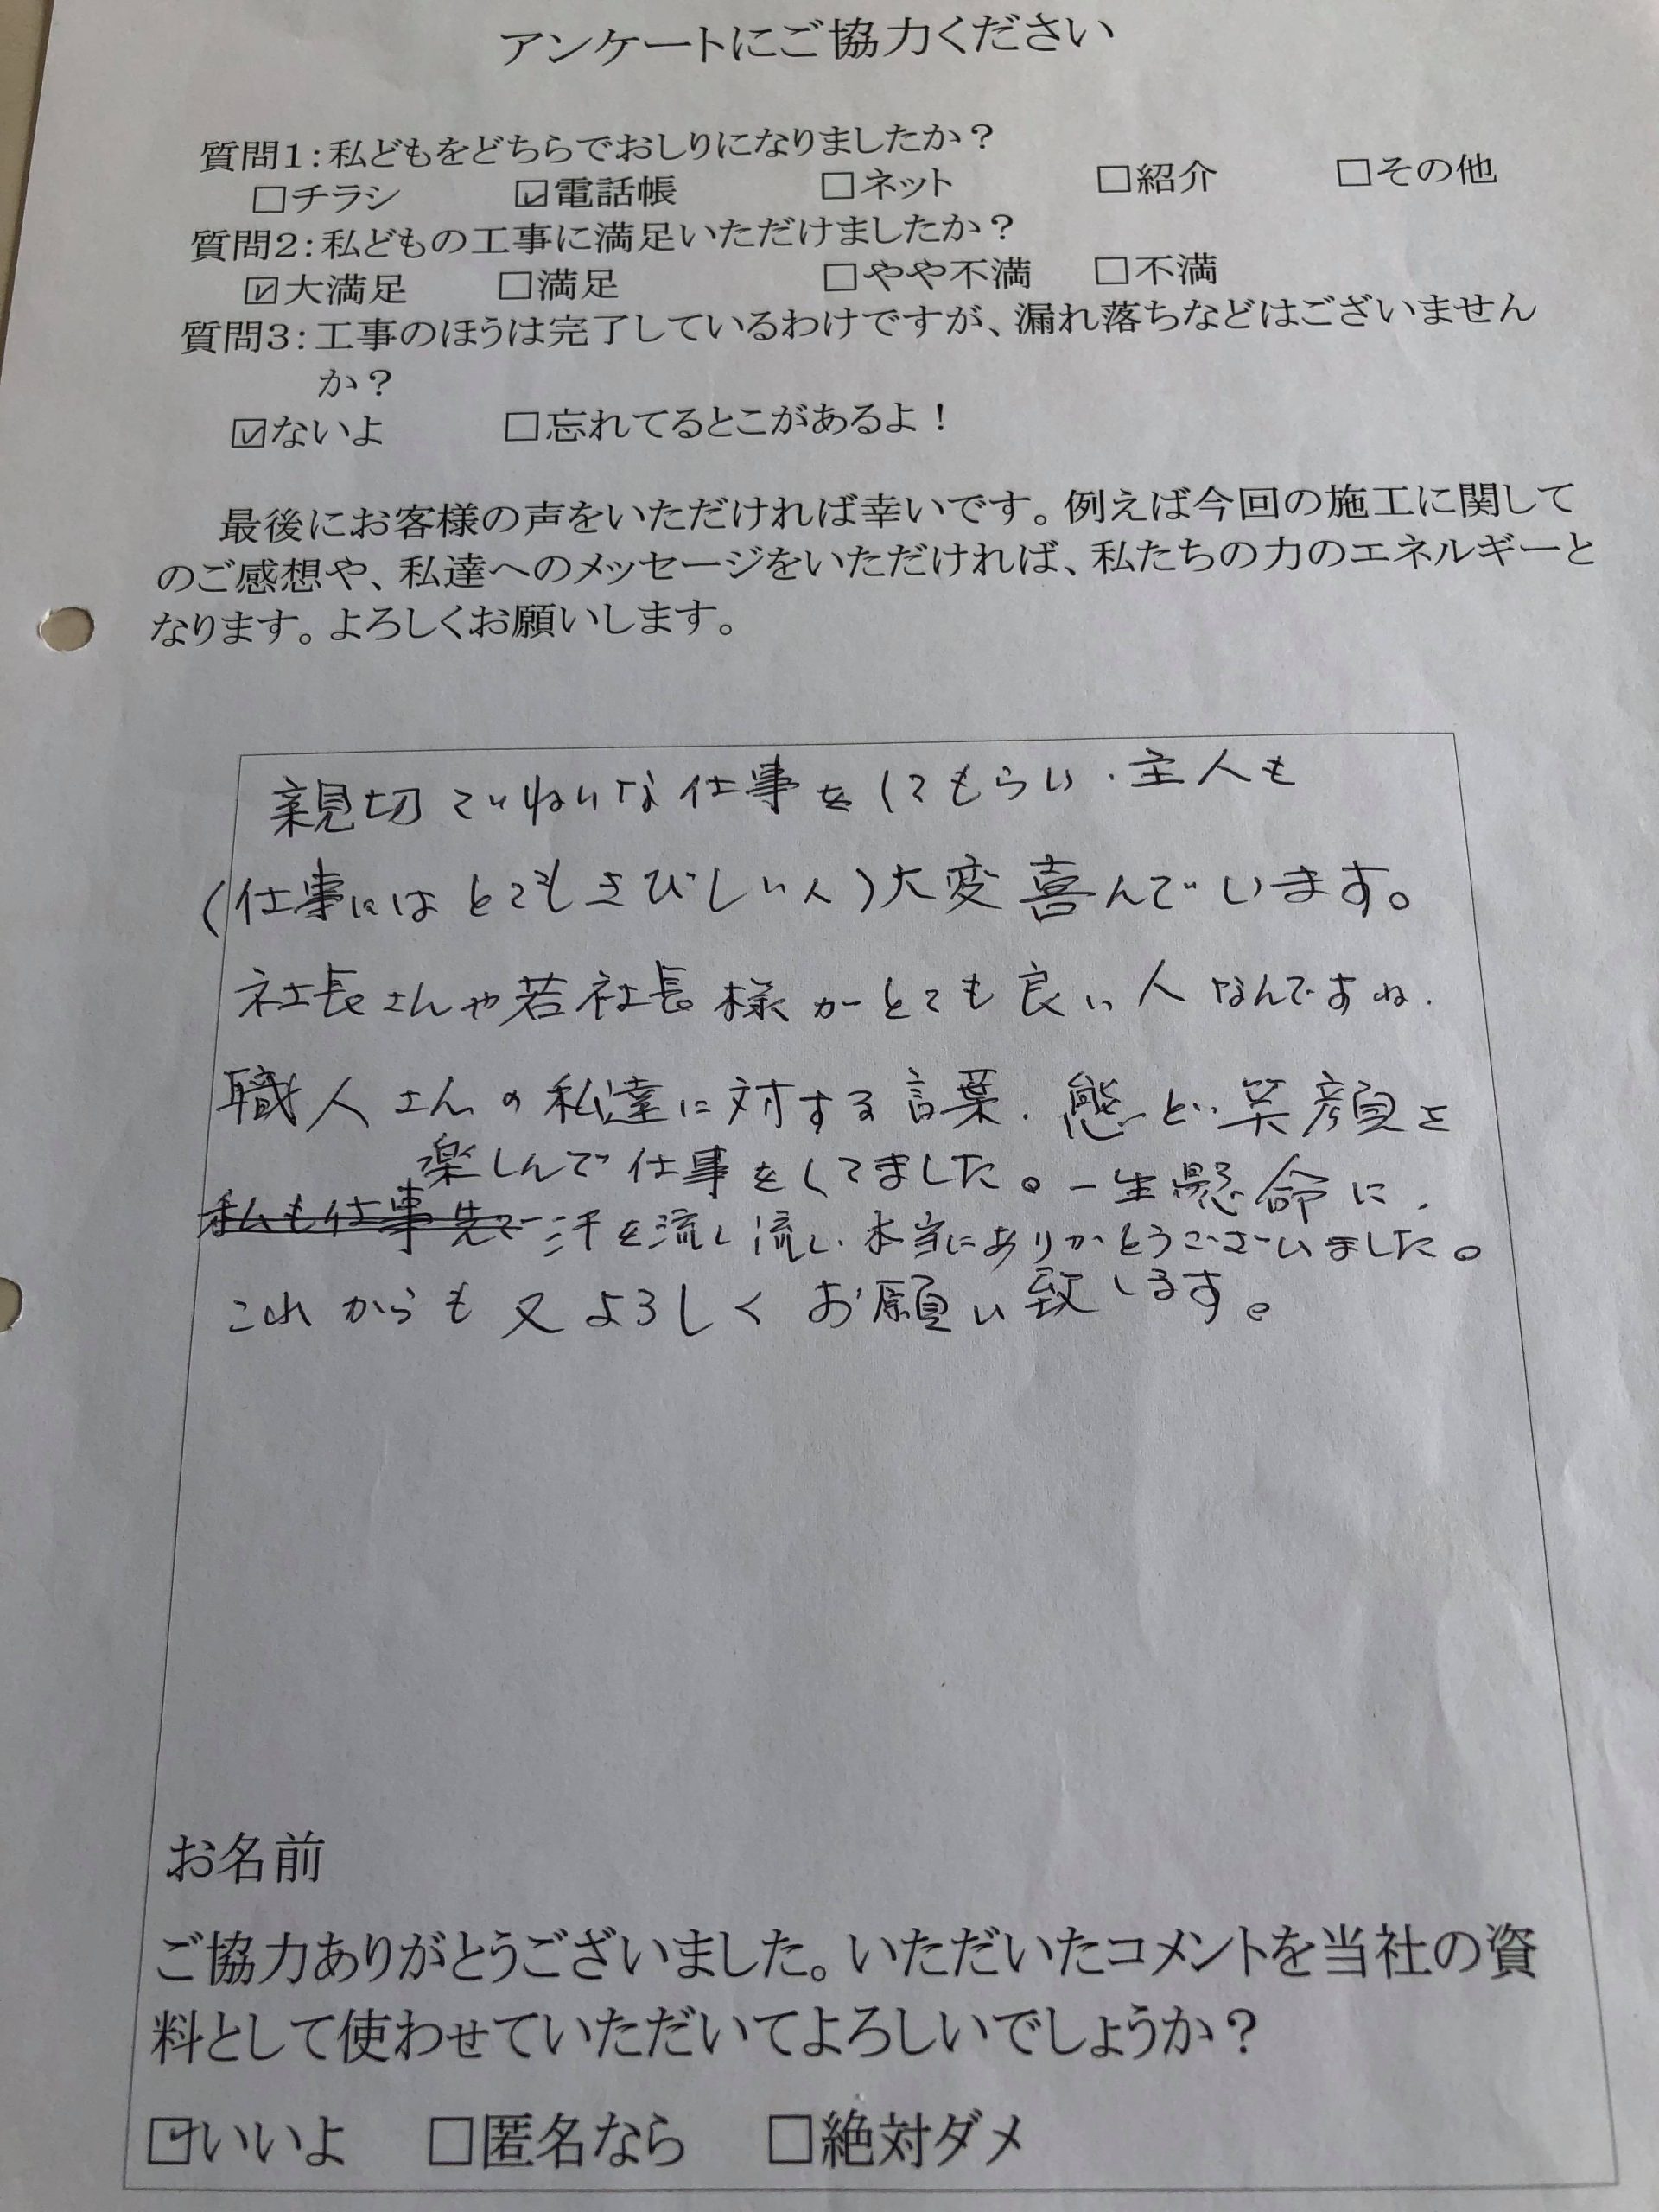 アンケートにご協力ください
質問1：私どもをどちらでおしりになりましたか？
□チラシ ☑電話帳 □ネット □紹介 □その他
質問2：私どもの工事に満足いただけましたか？
☑大満足 □満足 □やや不満 □不満
質問3：工事のほうは完了しているわけですが、漏れ落ちなどはございません
か？
☑ないよ □忘れてるとこがあるよ！
最後にお客様の声をいただければ幸いです。例えば今回の施工に関して
のご感想や、私達へのメッセージをいただければ、私たちの力のエネルギーと
なります。よろしくお願いします。
親切ていねいな仕事をしてもらい、主人も
（仕事にはとてもきびしい人）大変喜んでいます。
社長さんや若社長様がとても良い人なんですね、
職人さんの私達に対する言葉、態ど、笑顔を
楽しんで仕事をしてました。一生懸命に、
私も仕事先で汗を流し流し、本当にありがとうございました。
これからも又よろしくお願い致します。
お名前
ご協力ありがとうございました。いただいたコメントを当社の資
料として使わせていただいてよろしいでしょうか？
☑いいよ □匿名なら □絶対ダメ